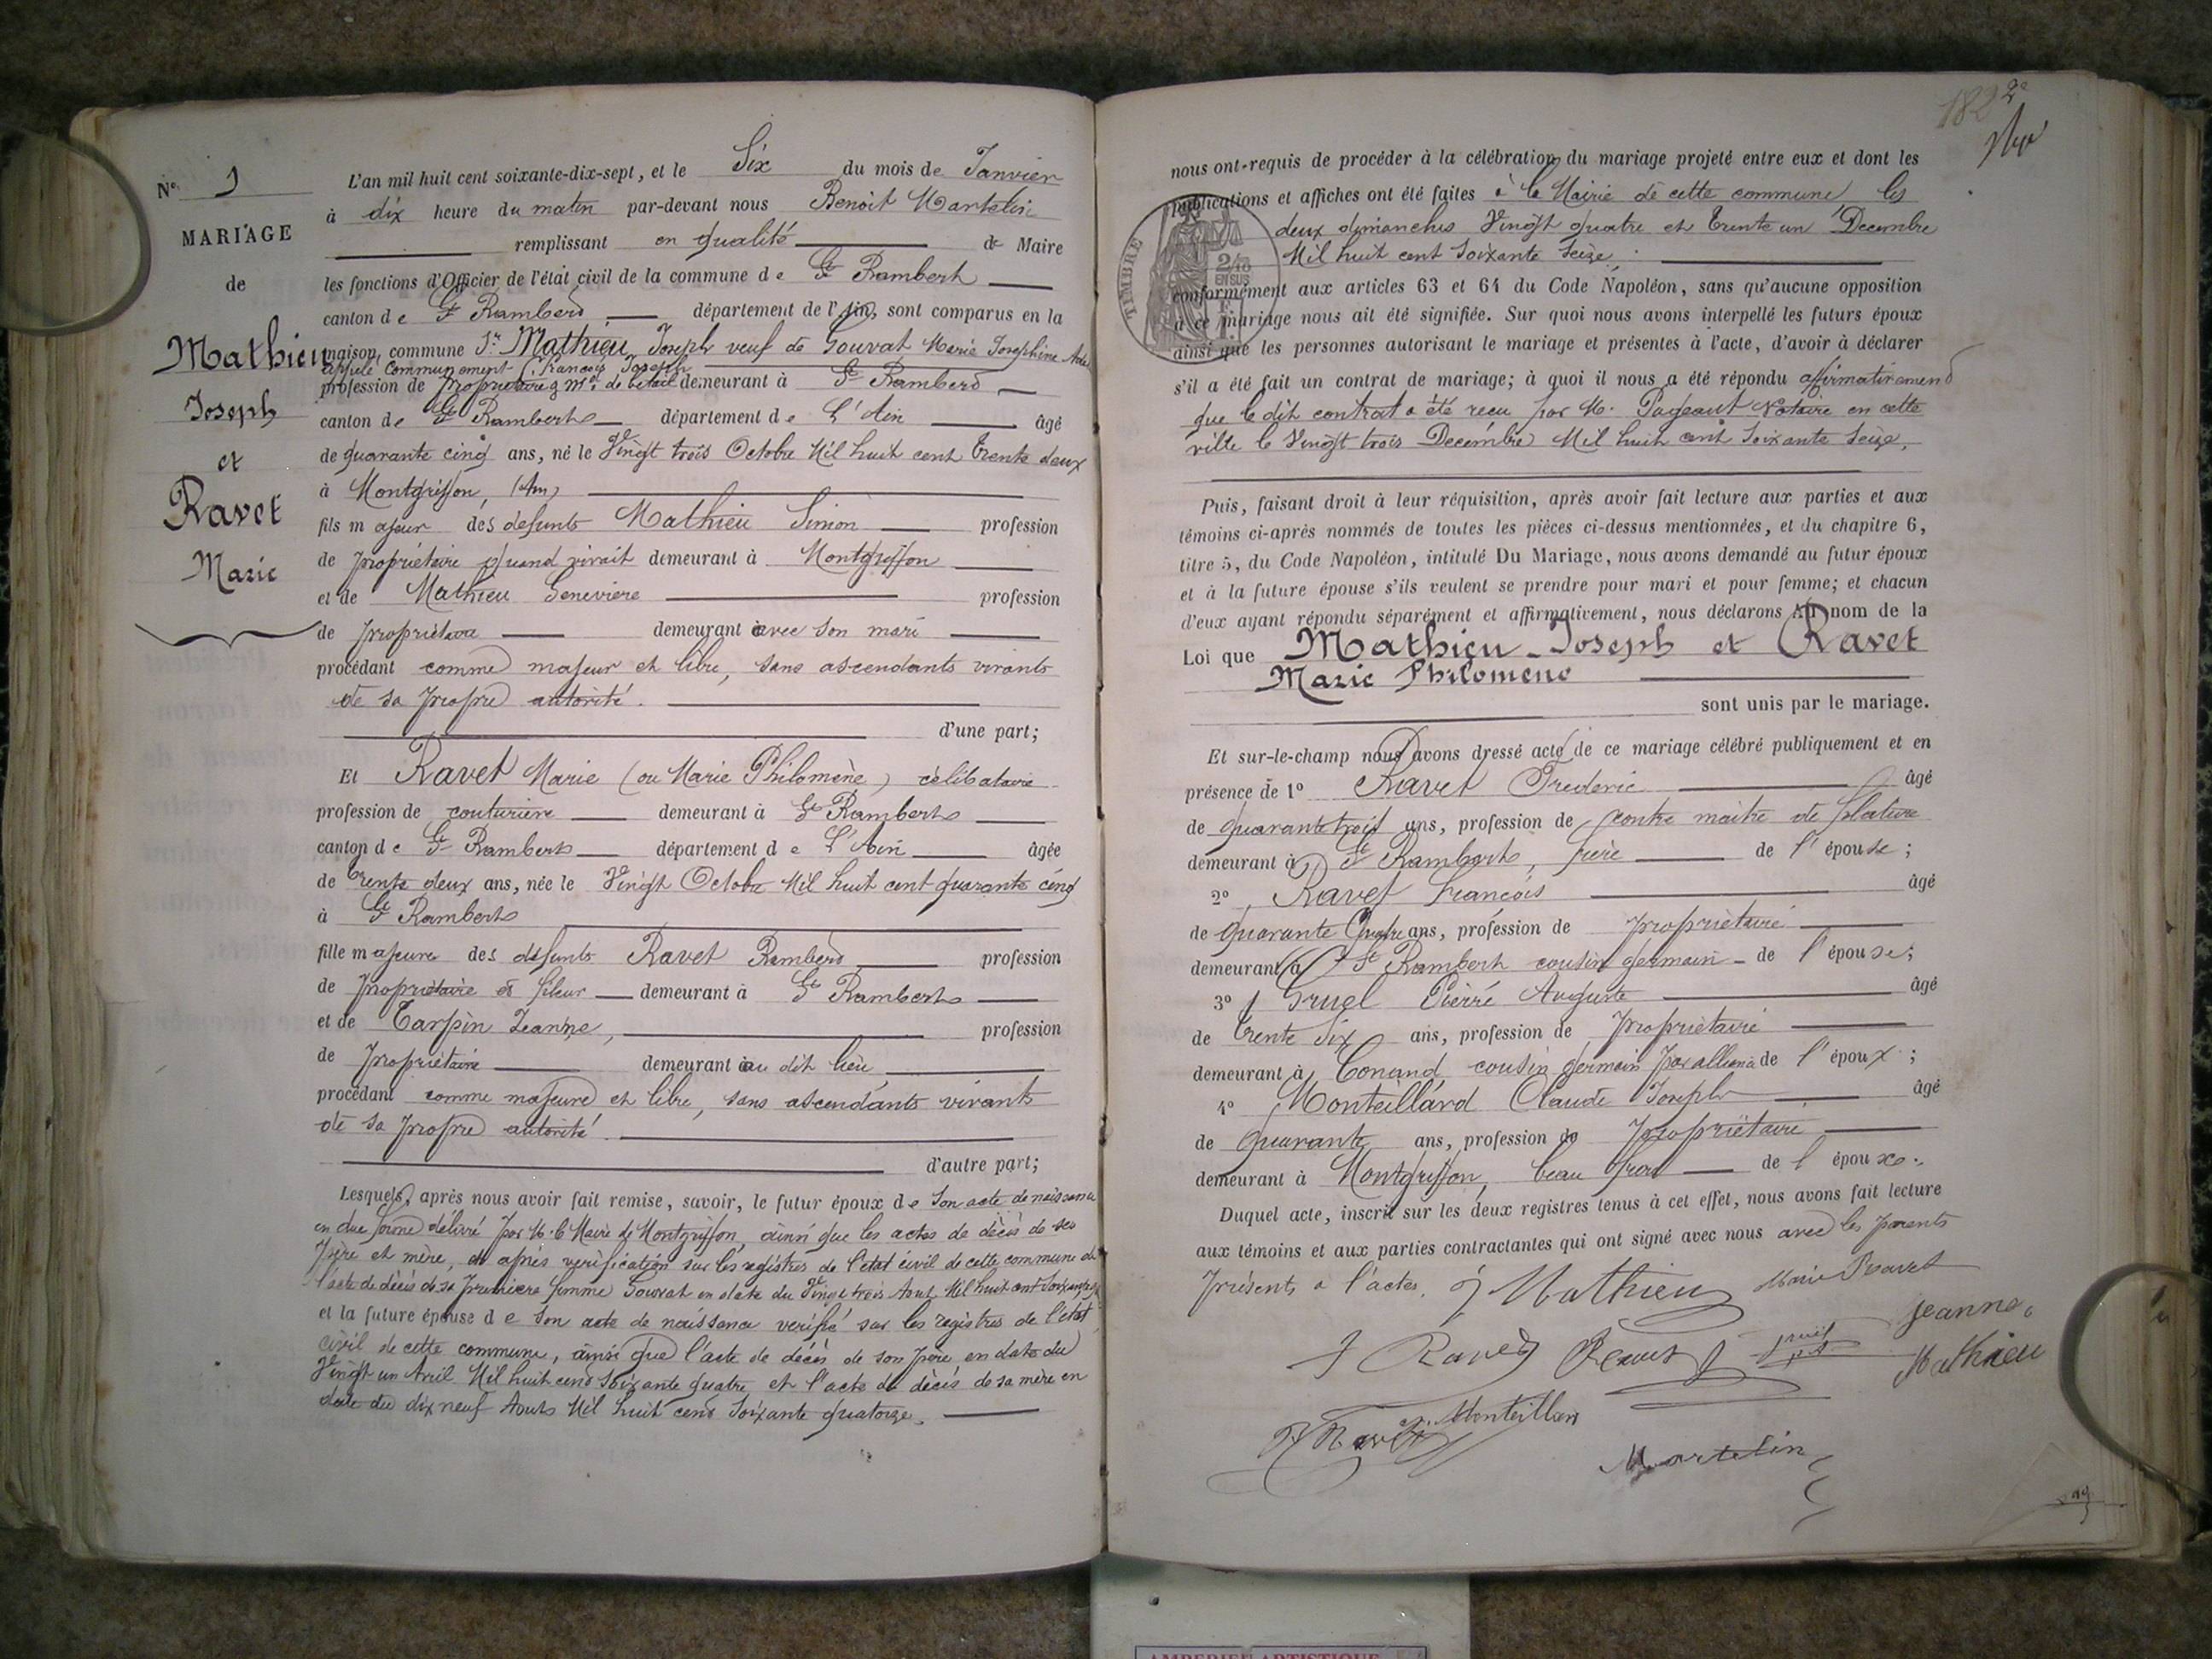 N° 1
MARIAGE
de
Mathieu
Joseph
et
Ravet
Marie
L'an mil huit cent soixante-dix-sept, et le Six du mois de Janvier
à dix heure du matin par-devant nous Benoit Martelin
remplissant en qualité de Maire
les fonctions d'Officier de l'état civil de la commune de St Rambert
canton de St Rambert département de l'Ain, sont comparus en la
maison commune Sr Mathieu Joseph veuf de Gouvat Marie Josephine
appelé Communement François Joseph
profession de propriétaire & md de bétail demeurant à St Rambert
canton de St Rambert département de L'Ain âgé
de quarante cinq ans, né le Vingt trois Octobre Mil huit cent Trente deux
à Montgriffon, (Ain)
fils majeur des defunts Mathieu Simon profession
de propriétaire quand vivait demeurant à Montgriffon
et de Mathieu Genevieve profession
de propriétaire demeurant avec son mari
procédant comme majeur et libre, sans ascendants vivants
de sa propre autorité.
d'une part;
Et Ravet Marie (ou Marie Philomène) célibataire
profession de couturiere demeurant à St Rambert
canton de St Rambert département de L'Ain âgée
de Trente deux ans, née le Vingt Octobre Mil huit cent quarante cinq
à St Rambert
fille majeure des défunts Ravet Rambert profession
de propriétaire et fileur demeurant à St Rambert
et de Tarpin Jeanne, profession
de propriétaire demeurant au dit lieu,
procédant comme majeure et libre, sans ascendants vivants
de sa propre autorité.
d'autre part;
Lesquels, après nous avoir fait remise, savoir, le futur époux de son acte de naissance
en due forme délivré par M. le Maire de Montgriffon, ainsi que les actes de décès de ses
père et mère, et après vérification sur les régistres de l'etat civil de cette commune de
l'acte de décès de sa premiere femme Gouvat en date du Vingt trois Aout Mil huit cent
et la future épouse de son acte de naissance verifié sur les registres de l'etat
civil de cette commune, ainsi que l'acte de décès de son père en date du
Vingt un Avril Mil huit cent soixante quatre et l'acte de décès de sa mère en
date du dix neuf Aout Mil huit cent soixante quatorze.
182 2e
nous ont requis de procéder à la célébration du mariage projeté entre eux et dont les
publications et affiches ont été faites à la Mairie de cette commune, les
deux dimanches Vingt quatre et Trente un Decembre
Mil huit cent Soixante Seize.
TIMBRE
2/10
EN SUS
conformément aux articles 63 et 64 du Code Napoléon, sans qu'aucune opposition
à ce mariage nous ait été signifiée. Sur quoi nous avons interpellé les futurs époux
ainsi que les personnes autorisant le mariage et présentes à l'acte, d'avoir à déclarer
s'il a été fait un contrat de mariage; à quoi il nous a été répondu affirmativement
que le dit contrat a été reçu par M. Pageaut Notaire en cette
ville le Vingt trois Decembre Mil huit cent soixante seize,
Puis, faisant droit à leur réquisition, après avoir fait lecture aux parties et aux
témoins ci-après nommés de toutes les pièces ci-dessus mentionnées, et du chapitre 6,
titre 5, du Code Napoléon, intitulé Du Mariage, nous avons demandé au futur époux
et à la future épouse s'ils veulent se prendre pour mari et pour femme; et chacun
d'eux ayant répondu séparément et affirmativement, nous déclarons Au nom de la
Loi que Mathieu - Joseph et Ravet
Marie Philomene
sont unis par le mariage.
Et sur-le-champ nous avons dressé acte de ce mariage célébré publiquement et en
présence de 1° Ravet Frederic âgé
de Quarante trois ans, profession de contre maitre de filature
demeurant à St Rambert, frère de l'épouse;
2° Ravet François âgé
de Quarante Quatre ans, profession de propriétaire
demeurant à St Rambert cousin germain de l'épouse;
3° Gruel Pierre Auguste âgé
de Trente Six ans, profession de propriétaire
demeurant à Conand, cousin germain par alliance de l'époux;
4° Monteillard Claude Joseph âgé
de Quarante ans, profession de propriétaire
demeurant à Montgriffon, beau frere de l époux.
Duquel acte, inscrit sur les deux registres tenus à cet effet, nous avons fait lecture
aux témoins et aux parties contractantes qui ont signé avec nous avec les parents
présents a l'actes. J Mathieu Marie Ravet
Jeanne
F Ravet Mathieu
Monteillard
Martelin
AMBERIEU ARTISTIQUE